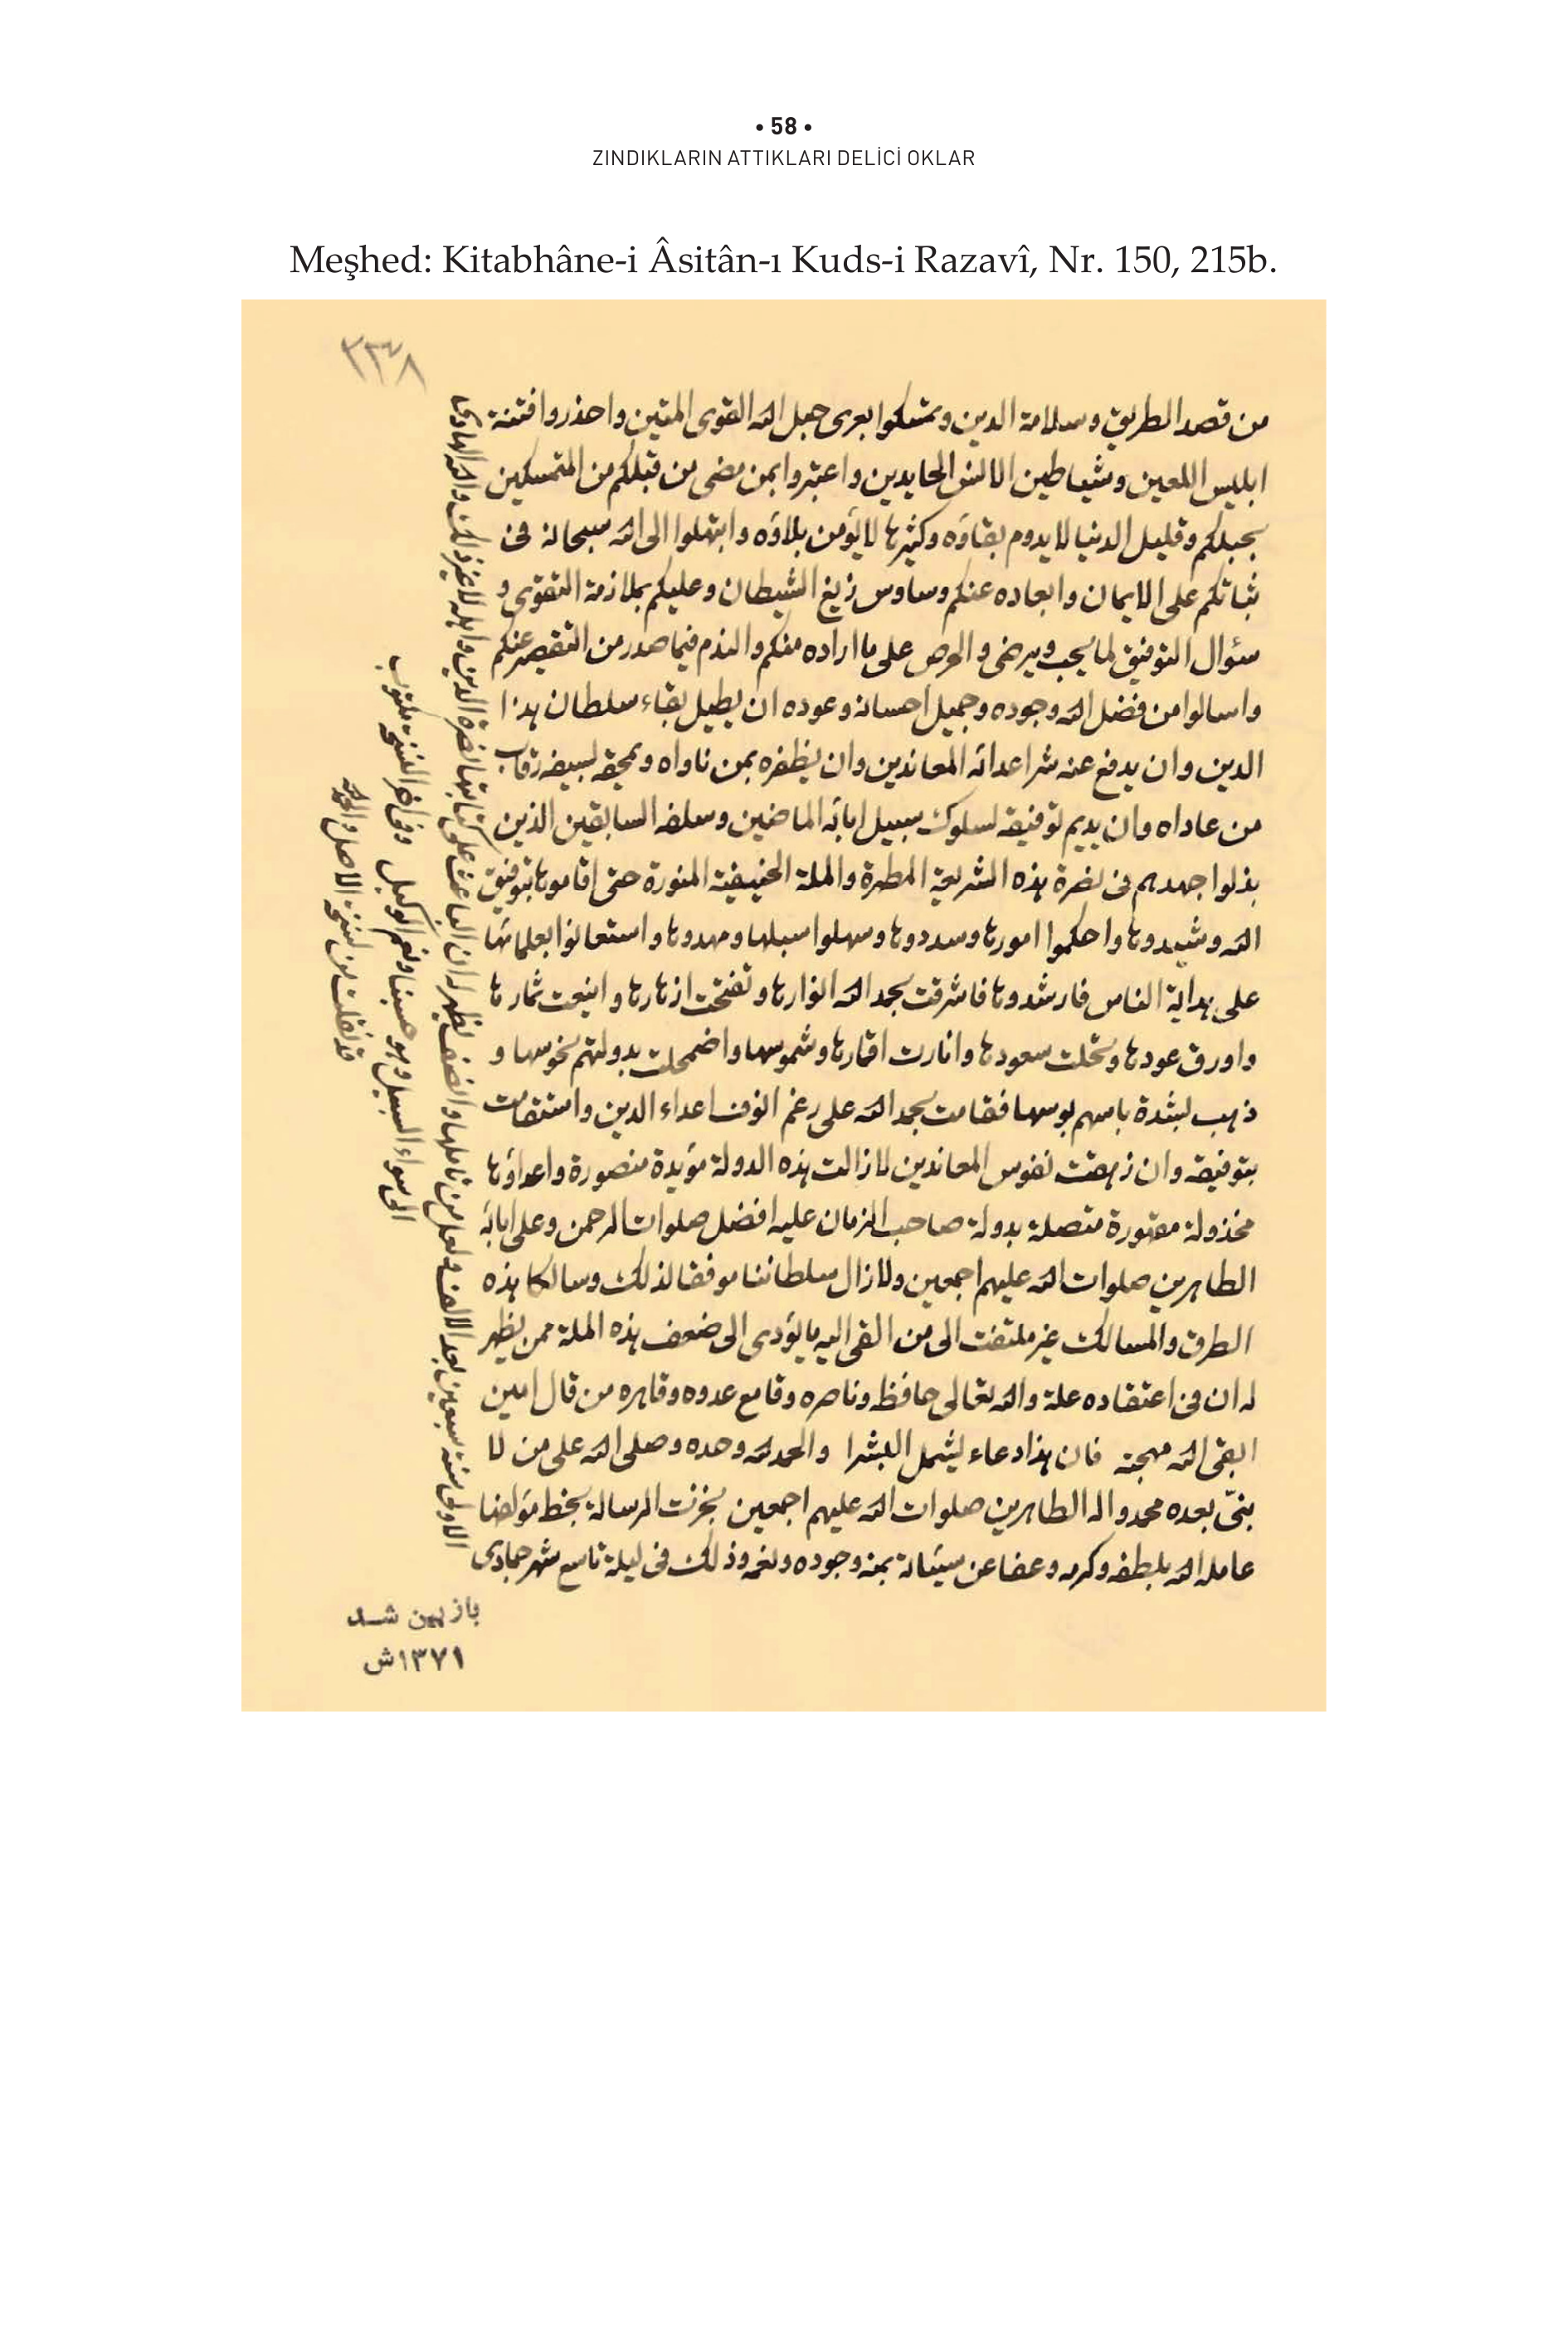 • 58 •
ZINDIKLARIN ATTIKLARI DELİCİ OKLAR
Meşhed: Kitabhâne-i Âsitân-ı Kuds-i Razavî, Nr. 150, 215b.
٣٣٨
من قصد الطريق وسلامة الدين وتمسكوا بعرى حبل الله القوى المتين واحذروا فتنة
ابليس اللعين وشياطين الانس الحايدين واعتبروا بمن مضى من قبلكم من المتمسكين
بحبلكم وقليل الدنيا لا يدوم بقاؤه وكثيرها لا يؤمن بلاؤه وابتهلوا الى الله سبحانه فى
ثباتكم على الايمان وابعاده عنكم وساوس زيغ الشيطان وعليكم بملازمة التقوى و
سؤال التوفيق لما يحب ويرضى والحرص على ما اراده منكم والندم فيما صدر من التقصير عنكم
واسالوا من فضل الله وجوده وجميل احسانه وعوده ان يطيل بقاء سلطان هذا
الدين وان يدفع عنه شر اعدائه المعاندين وان يظفره بمن ناواه ويمحقه بسيفه رقاب
من عاداه وان يديم توفيقه لسلوك سبيل ابائه الماضين وسلفه السابقين الذين
بذلوا جهدهم فى نصرة هذه الشريعة المطهرة والملة الحنيفية المنورة حتى اقاموها بتوفيق
الله وشيدوها واحكموا امورها وسددوها وسهلوا سبلها ومهدوها واستعانوا بعلمائها
على هداية الناس فارشدوها فاشرقت بحمد الله انوارها وتفتحت ازهارها واينعت ثمارها
واورق عودها وتحلت سعودها وانارت اقمارها وشموسها واضمحلت بدولتهم نحوسها و
ذهب بشدة باسهم بوسها فقامت بحمد الله على رغم انوف اعداء الدين واستقامت
بتوفيقه وان زهقت نفوس المعاندين لا زالت هذه الدولة مؤيدة منصورة واعداؤها
مخذولة مقهورة متصلة بدولة صاحب الزمان عليه افضل صلوات الرحمن وعلى ابائه
الطاهرين صلوات الله عليهم اجمعين ولا زال سلطاننا موفقا لذلك وسالكا هذه
الطرق والمسالك غير ملتفت الى من القى اليه ما يؤدى الى ضعف هذه الملة ممن يظهر
له ان فى اعتقاده علة والله تعالى حافظه وناصره وقامع عدوه وقاهره من قال امين
ابقى الله مهجته فان هذا دعاء يشمل البشرا والحمد لله وحده وصلى الله على من لا
نبىّ بعده محمد واله الطاهرين صلوات الله عليهم اجمعين نجزت الرسالة بخط مؤلفها
عامله الله بلطفه وكرمه وعفا عن سيئاته بمنه وجوده ونعمه وذلك فى ليلة تاسع شهر جمادى
الاولى سنة سبعين بعد الالف ولعل من تاملها وانصف يظهر له ان الباعث على كتابتها نصرة الدين واهله لا غير ذلك والله الهادى
الى سواء السبيل وهو حسبنا ونعم الوكيل وفى اخر النسخة مكتوب
قد نقلت من نسخة الاصل والحمد لله
باز بين شد
١٣٧١ش